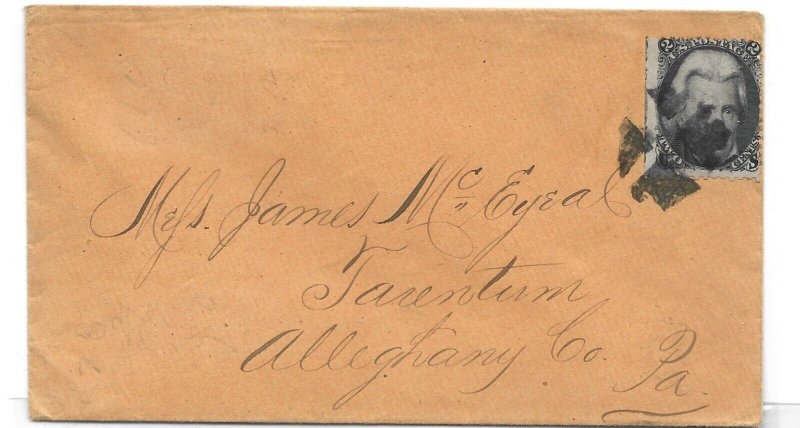 2 U.S. POSTAGE 2
TWO CENTS
Mrs. James McEyeal
Tarentum
Alleghany Co. Pa.